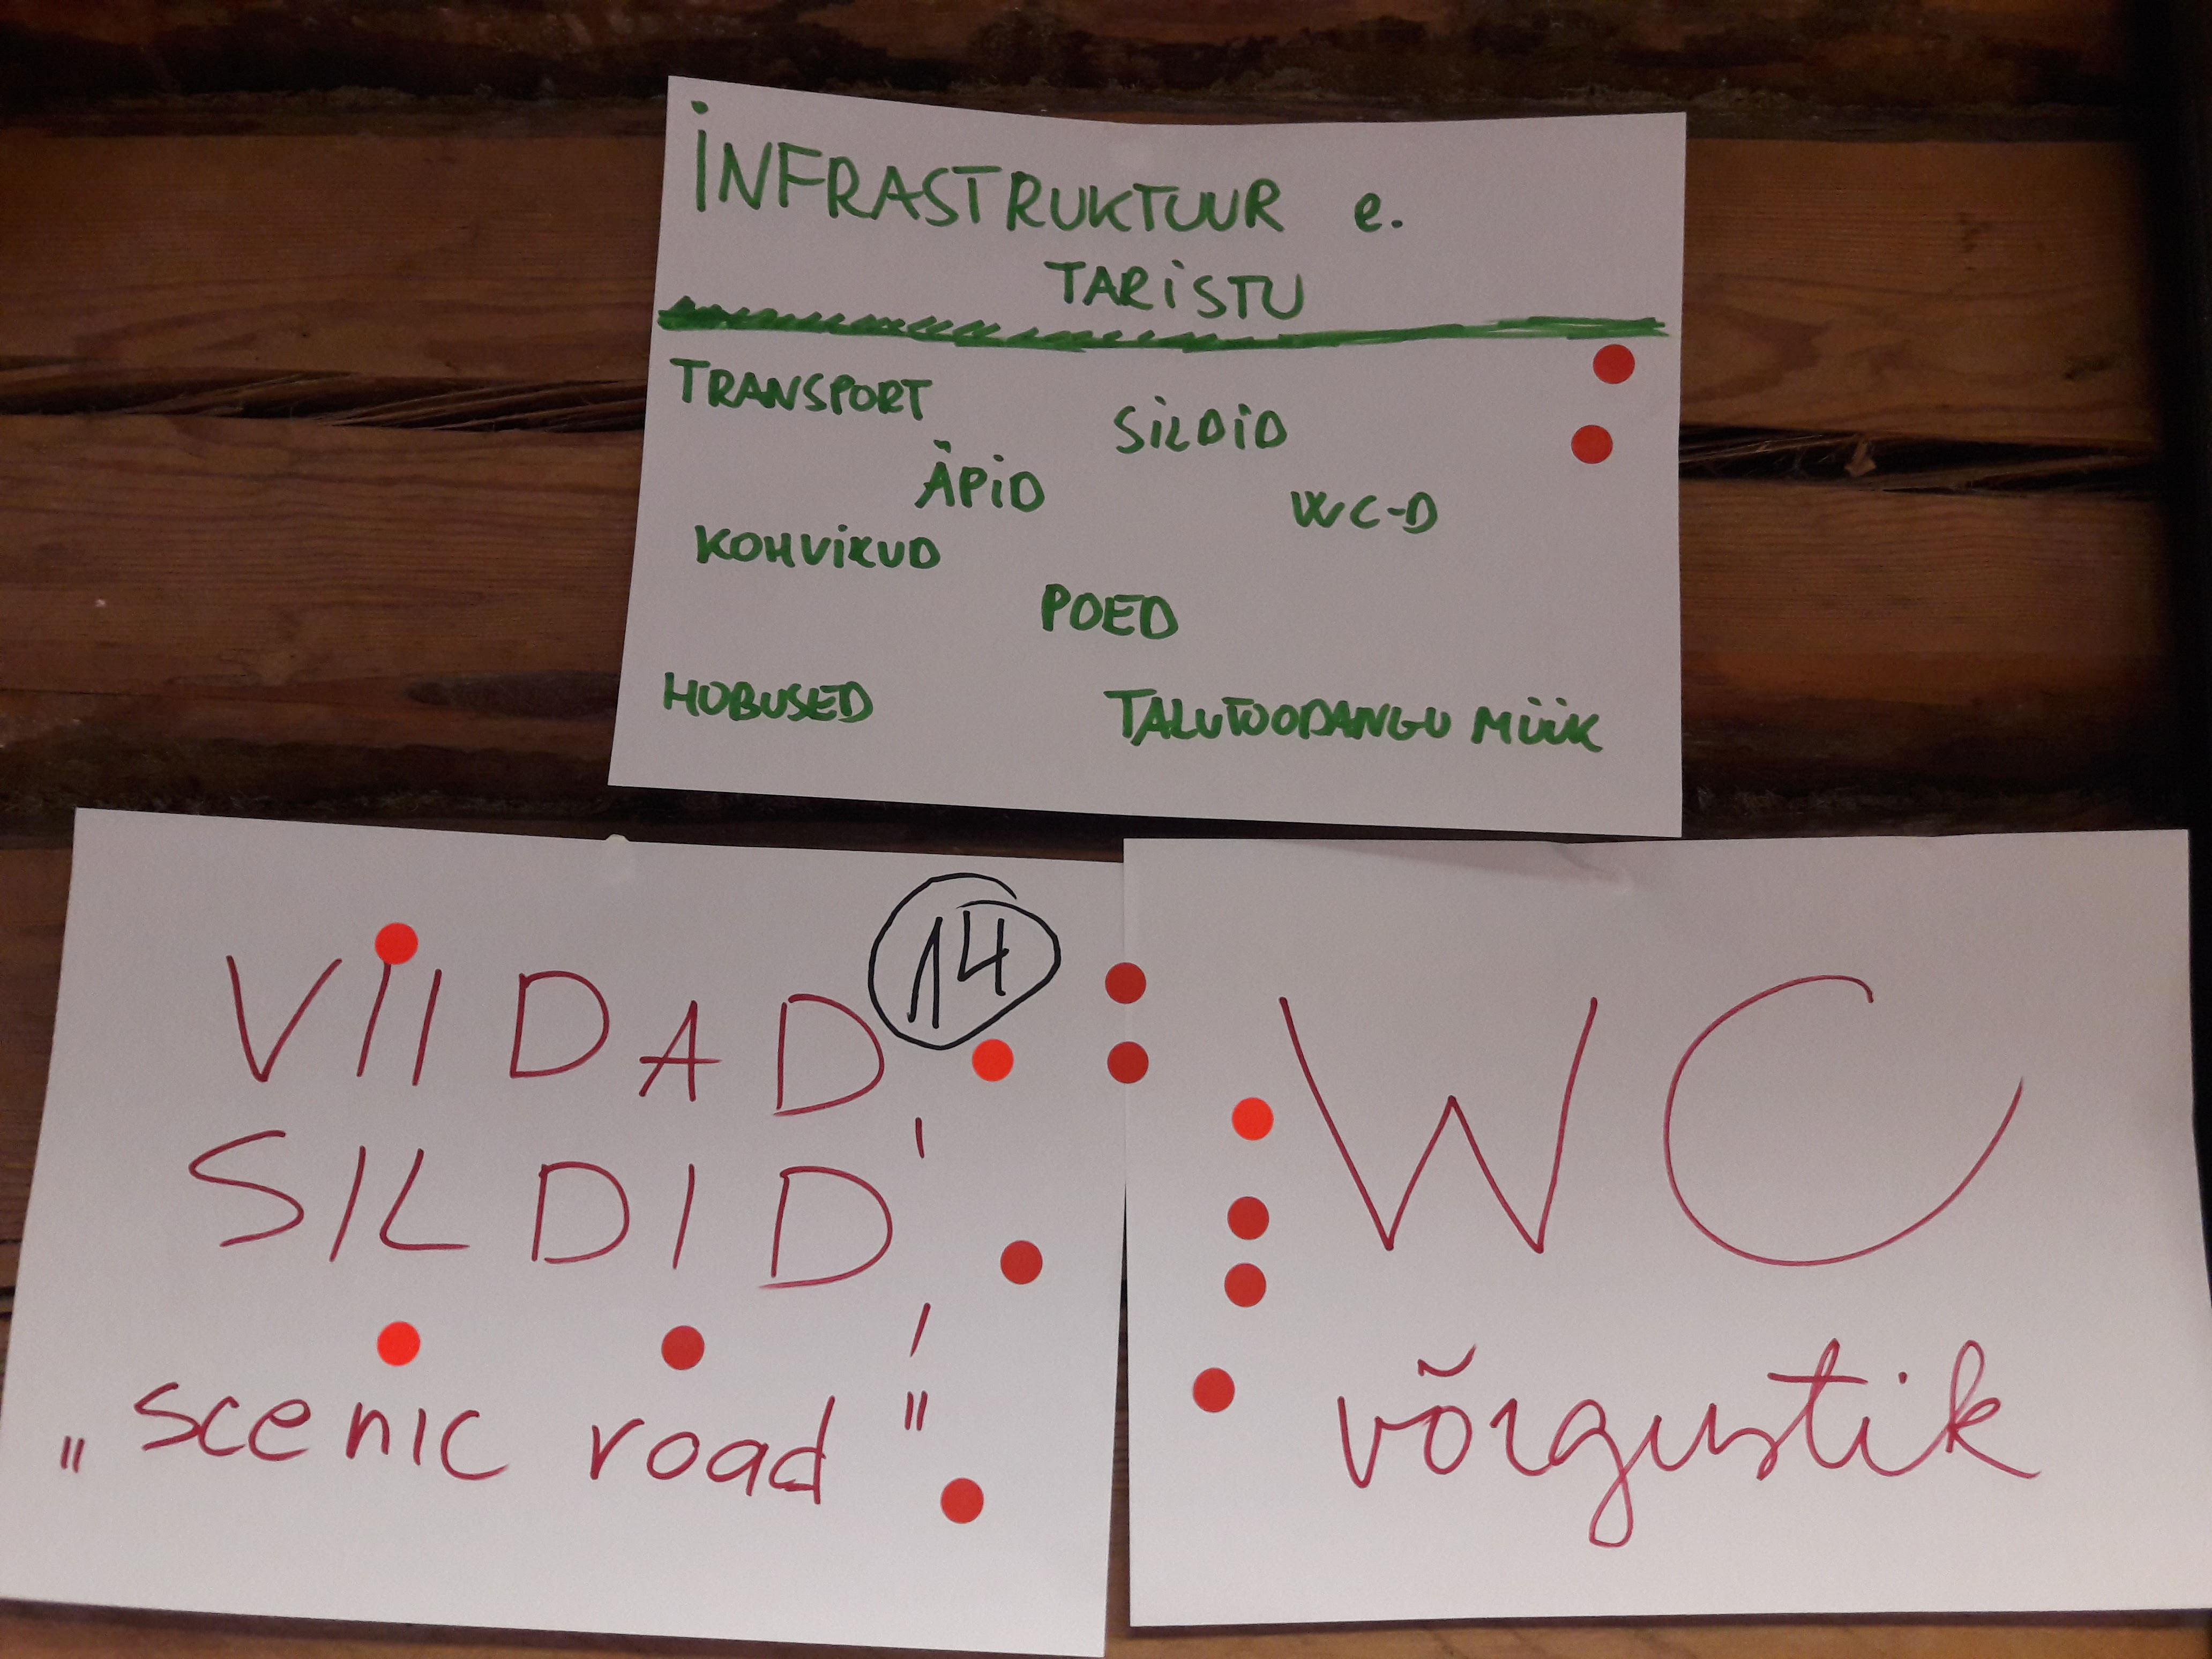 INFRASTRUKTUUR e.
TARISTU
TRANSPORT
SILDID
ÄPID
WC-D
KOHVIKUD
POED
HOBUSED
TALUTOODANGU MÜÜK
14
VIIDAD,
SILDID,
„scenic road"
WC
võrgustik